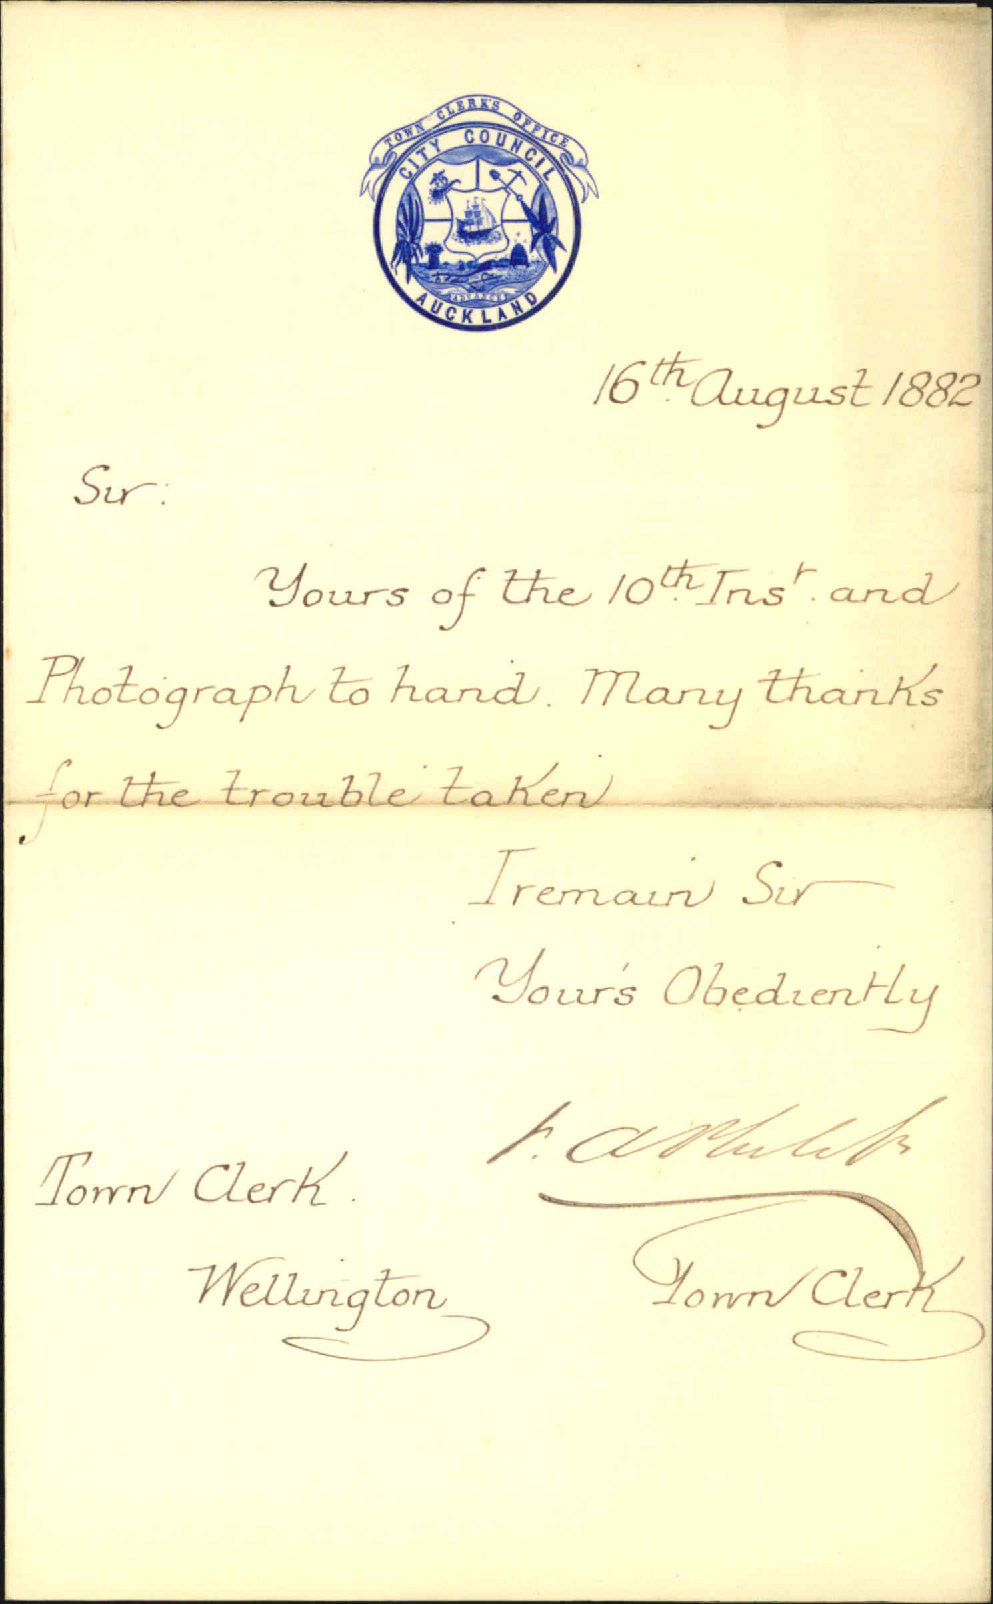 TOWN CLERK'S OFFICE
CITY COUNCIL
AUCKLAND
16th August 1882
Sir:
Yours of the 10th Inst. and
Photograph to hand. Many thanks
for the trouble taken
I remain Sir
Your's Obediently
Town Clerk.
Wellington
Town Clerk